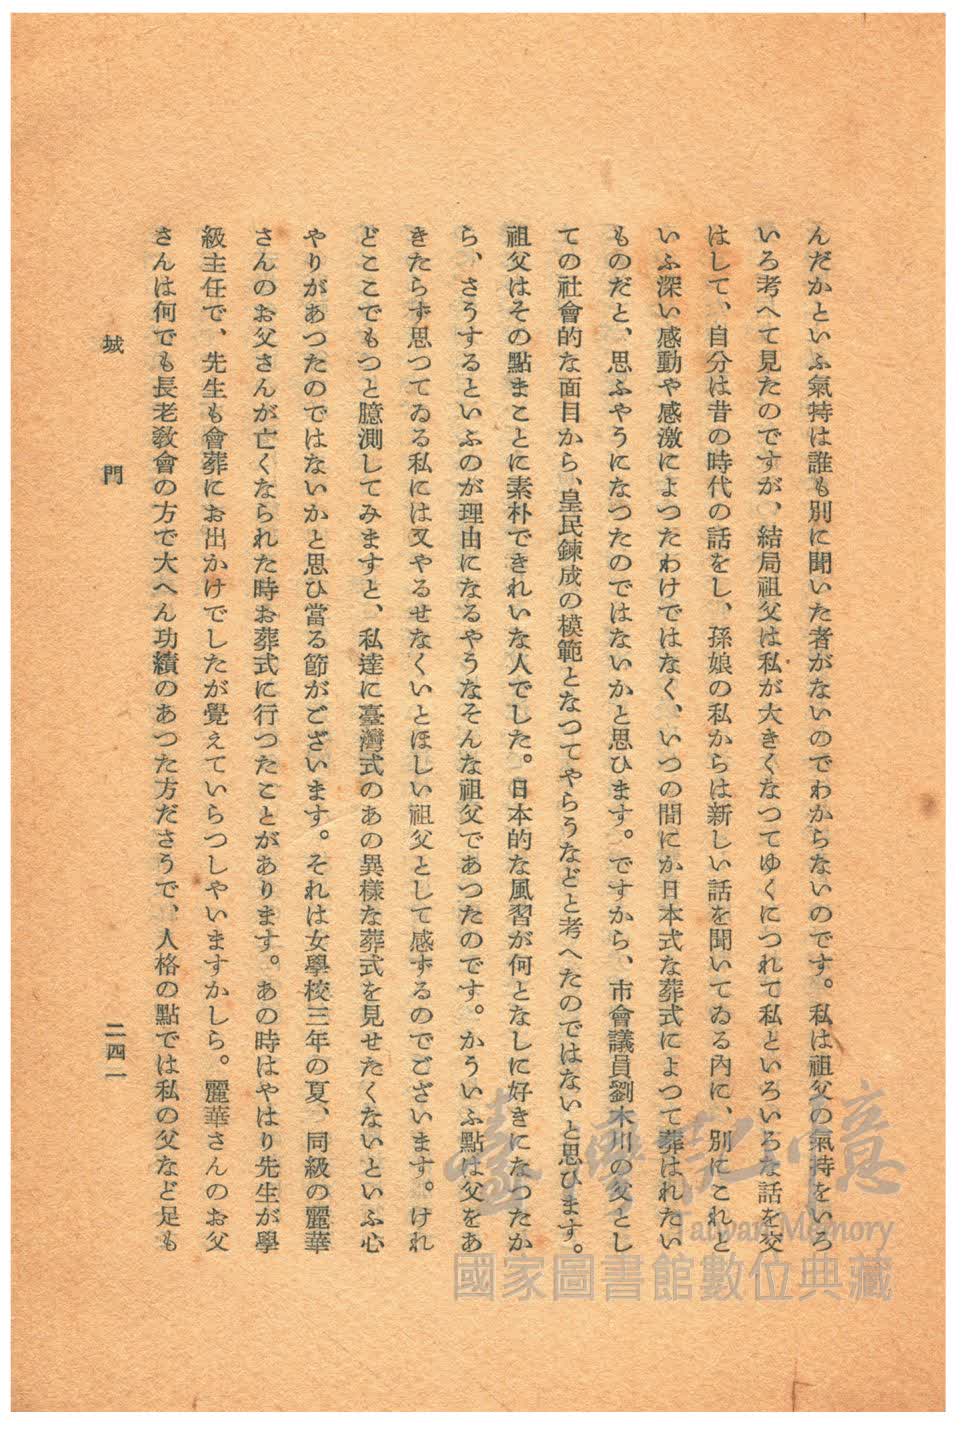 んだかといふ氣持は誰も別に聞いた者がないのでわからないのです。私は祖父の氣持をいろ
いろ考へて見たのですが、結局祖父は私が大きくなつてゆくにつれて私といろいろな話を交
はして、自分は昔の時代の話をし、孫娘の私からは新しい話を聞いてゐる內に、別にこれと
いふ深い感動や感激によつたわけではなく、いつの間にか日本式な葬式によつて葬はれたい
ものだと、思ふやうになつたのではないかと思ひます。ですから、市會議員劉木川の父とし
ての社會的な面目から、皇民鍊成の模範となつてやらうなどと考へたのではないと思ひます。
祖父はその點まことに素朴できれいな人でした。日本的な風習が何となしに好きになつたか
ら、さうするといふのが理由になるやうなそんな祖父であつたのです。かういふ點は父をあ
きたらず思つてゐる私には又やるせなくいとほしい祖父として感ずるのでございます。けれ
どここでもつと臆測してみますと、私達に臺灣式のあの異樣な葬式を見せたくないといふ心
やりがあつたのではないかと思ひ當る節がございます。それは女學校三年の夏、同級の麗華
さんのお父さんが亡くなられた時お葬式に行つたことがあります。あの時はやはり先生が學
級主任で、先生も會葬にお出かけでしたが覺えていらつしやいますかしら。麗華さんのお父
さんは何でも長老敎會の方で大へん功績のあつた方ださうで、人格の點では私の父など足も
城門
二四一
臺灣記憶
Taiwan Memory
國家圖書館數位典藏